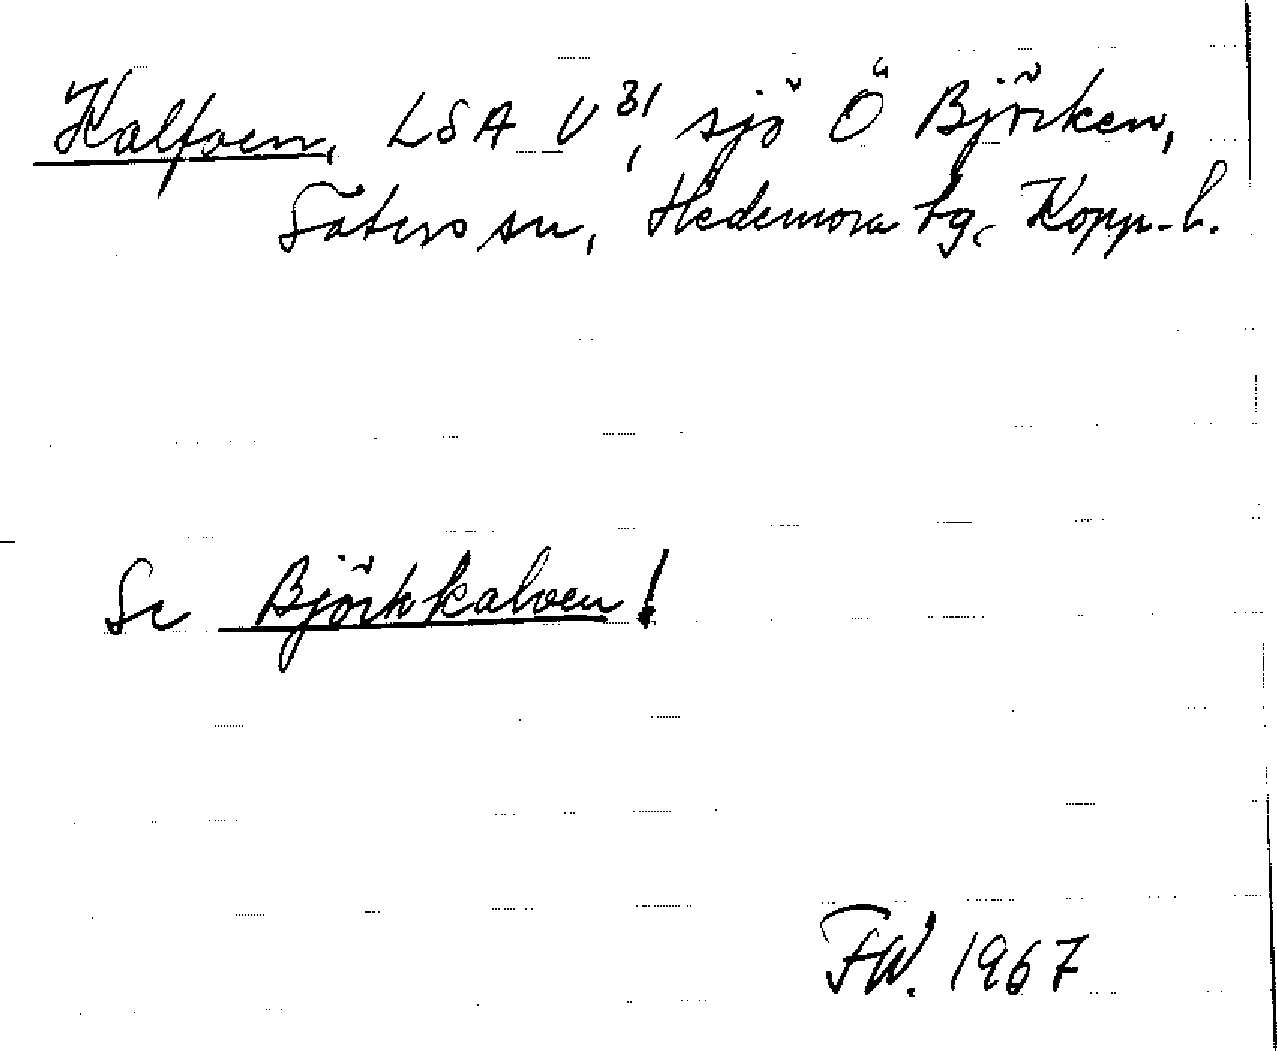 Kalfven, LSA U 31, sjö Ö Björken,
Säters sn, Hedemora tg, Kopp. l.
Se Björkkalven!
FW. 1967